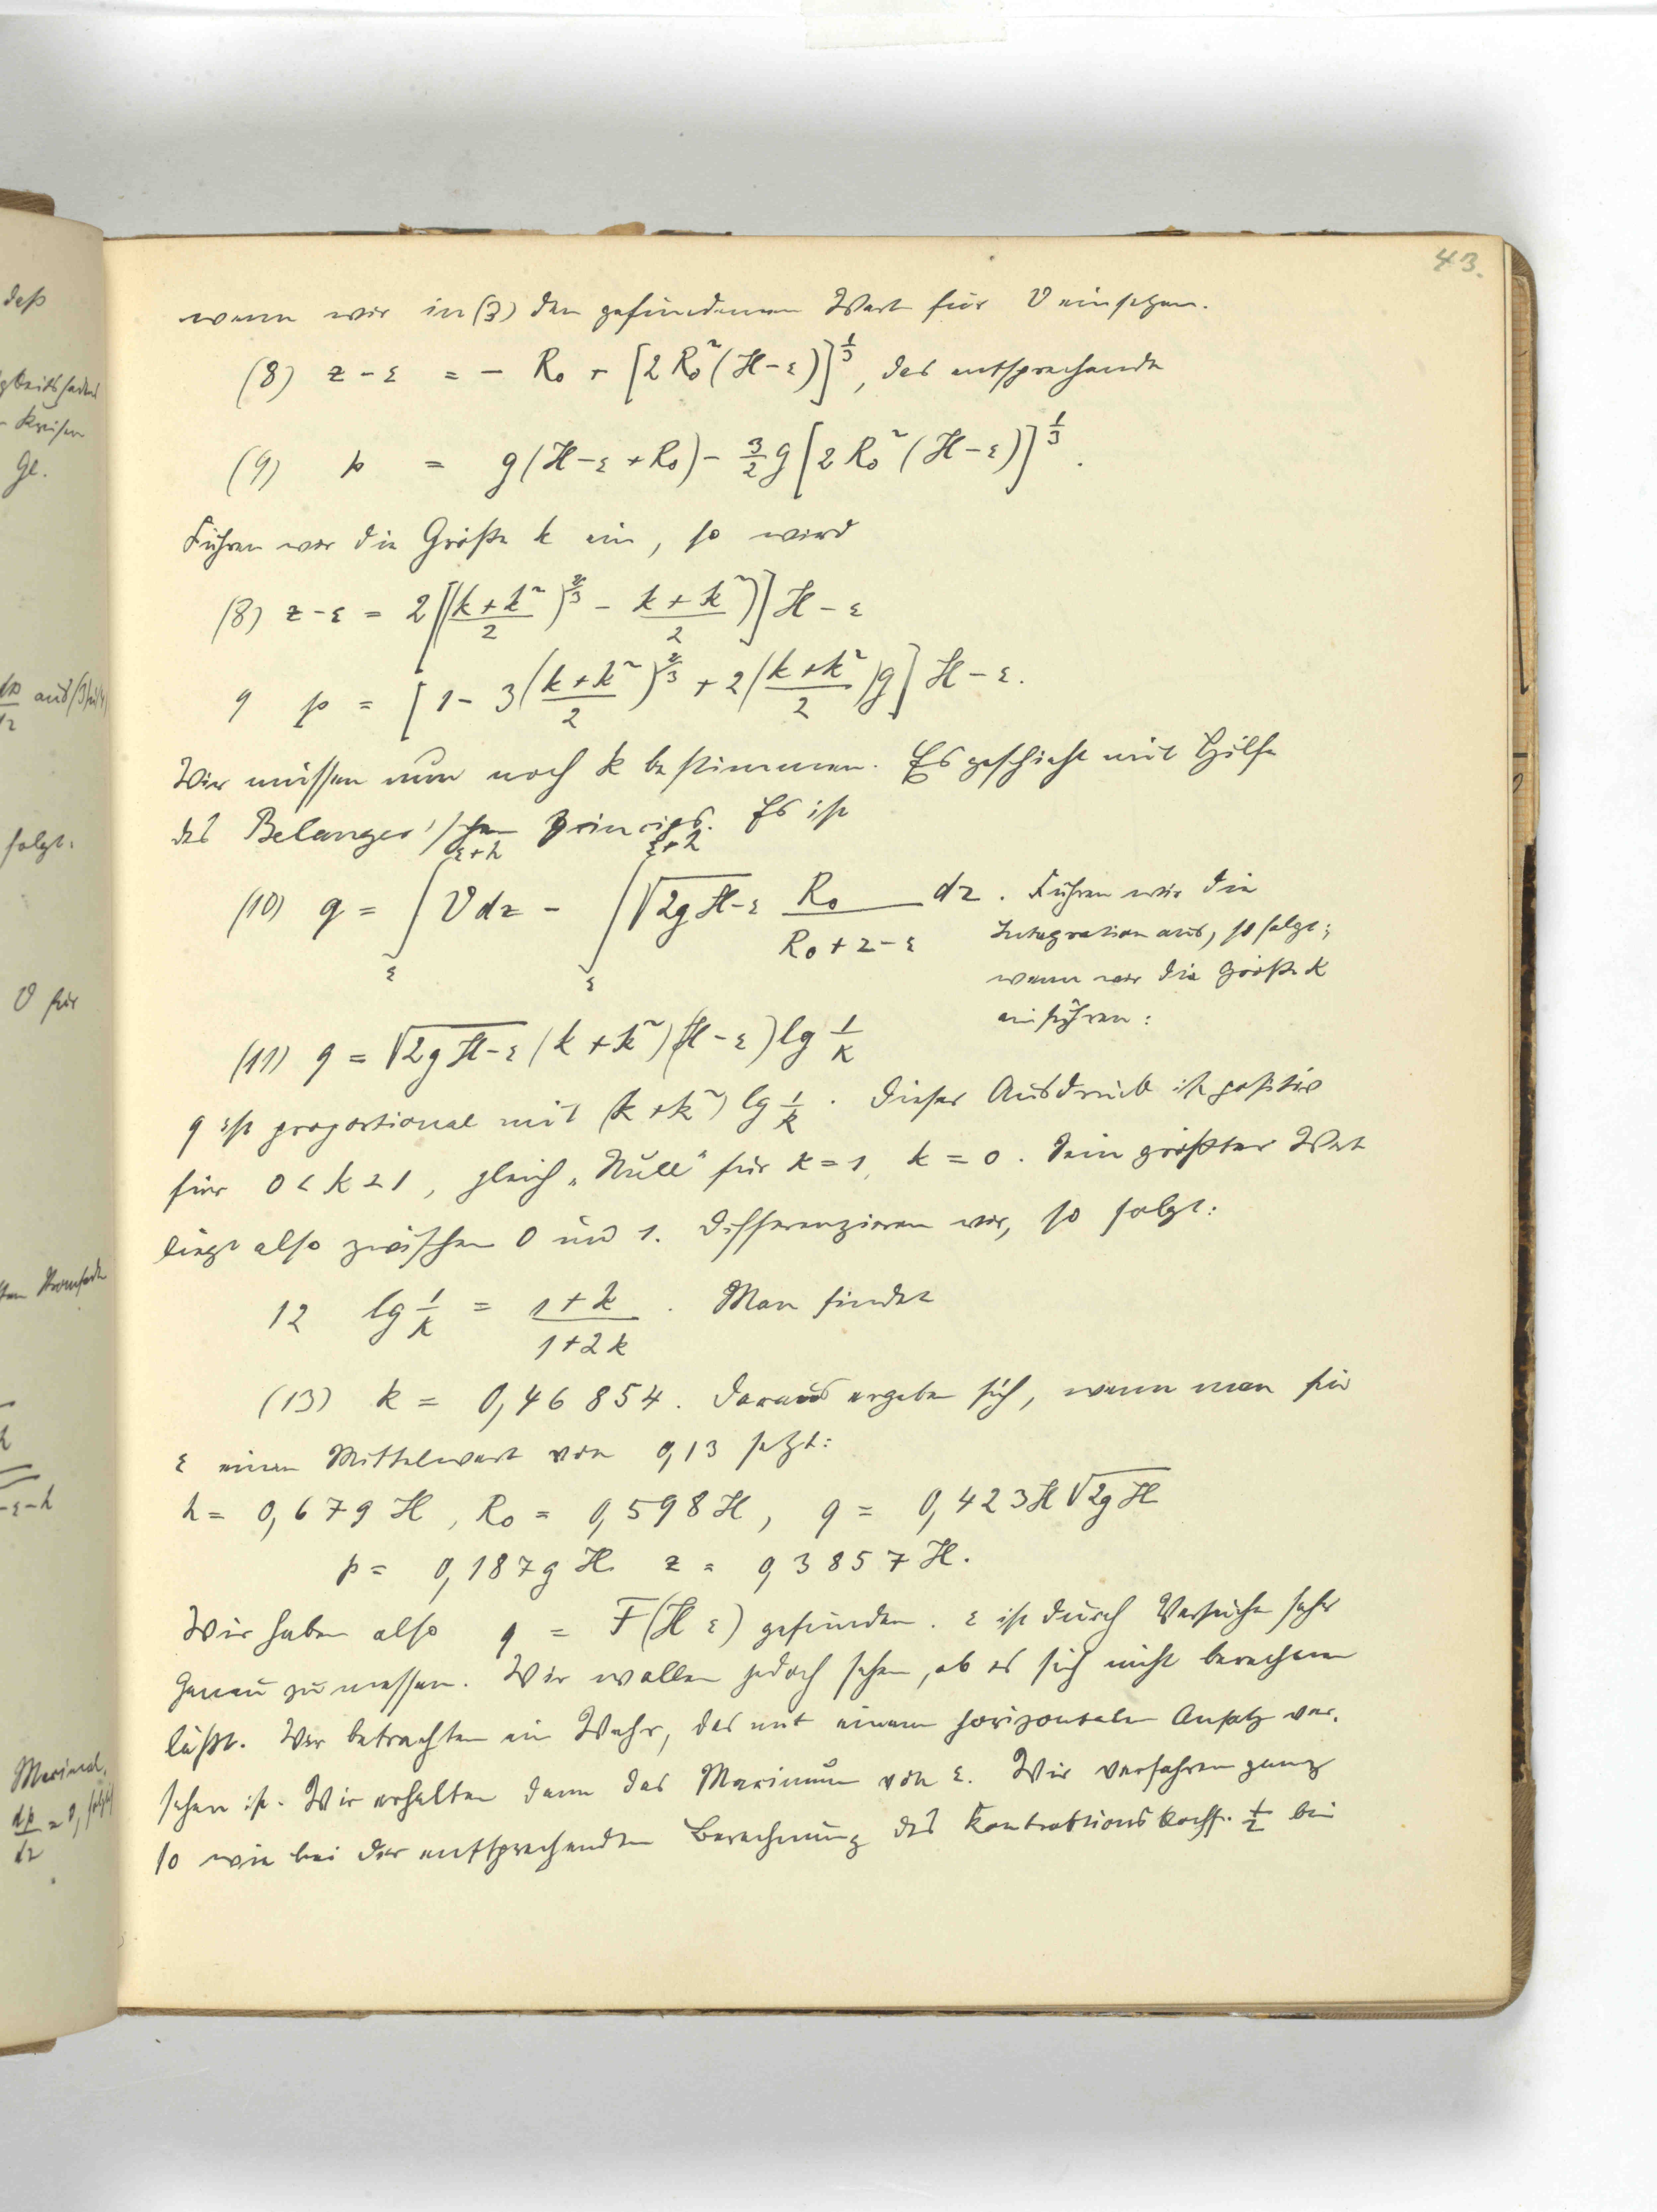 43.
wenn wir in (3) den gefundenen Wert für V einsetzen.
(8) z - ε = - R₀ + [2 R₀² (H - ε)]^{1/3}, das entsprechende
(9) p = g (H - ε + R₀) - 3/2 g [2 R₀² (H - ε)]^{1/3}.
Führen wir die Größe k ein, so wird
(8) z - ε = 2 [((k + k²)/2)^{2/3} - (k + k²)/2)] H - ε
9 p = [1 - 3 ((k + k²)/2)^{2/3} + 2 ((k + k²)/2) g] H - ε.
Wir müssen nun noch k bestimmen. Es geschieht mit Hilfe
des Belanger'schen Princips. Es ist
(10) q = ∫_ε^{ε+h} V dz - ∫_ε^{ε+h} √2g H-ε R₀/(R₀ + z - ε) dz. Führen wir die
Integration aus, so folgt;
wenn wir die Größe k
einführen:
(11) q = √2g H-ε (k + k²) (H - ε) lg 1/k
q ist proportional mit (k + k²) lg 1/k. Dieser Ausdruck ist positiv
für 0 < k < 1, gleich „Null“ für k = 1, k = 0. Sein größter Wert
liegt also zwischen 0 und 1. Differenzieren wir, so folgt:
12 lg 1/k = (1 + k)/(1 + 2k). Man findet
(13) k = 0,46854. Daraus ergeben sich, wenn man für
ε einen Mittelwert von 0,13 setzt:
h = 0,679 H, R₀ = 0,598 H, q = 0,423 H √2g H
p = 0,187 g H z = 0,3857 H.
Wir haben also q = F(H ε) gefunden. ε ist durch Versuche sehr
genau zu messen. Wir wollen jedoch sehen, ob es sich nicht berechnen
läßt. Wir betrachten ein Wehr, das mit einem horizontalen Ansatz ver-
sehen ist. Wir erhalten dann das Maximum von ε. Wir verfahren ganz
so wie bei der entsprechenden Berechnung des Kontraktionskoeff. 1/2 bei